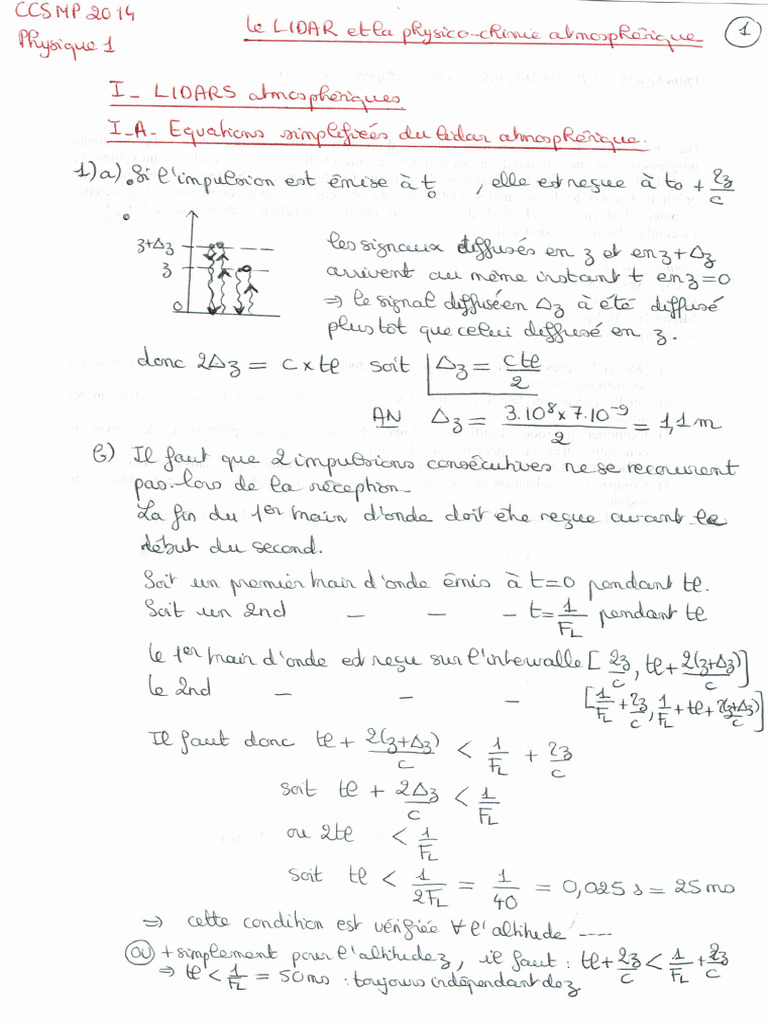 CCSMP 2014
Physique 1
Le LIDAR et la physico-chimie atmosphérique
1
I_ LIDARS atmosphériques
I_A_ Equations simplifiées du lidar atmosphérique.
1)a). Si l'impulsion est émise à t₀, elle est reçue à t₀ + 2z/c
z+Δz
z
0
les signaux diffusés en z et en z+Δz
arrivent au même instant t en z=0
⇒ le signal diffusé en Δz à été diffusé
plus tôt que celui diffusé en z.
donc 2Δz = c × tl soit Δz = ctl/2
AN Δz = 3.10⁸ × 7.10⁻⁹/2 = 1,1 m
b) Il faut que 2 impulsions consécutives ne se recouvrent
pas lors de la réception.
La fin du 1er train d'onde doit être reçue avant le
début du second.
Soit un premier train d'onde émis à t=0 pendant tl.
Soit un 2nd _ _ _ t=1/FL pendant tl
le 1er train d'onde est reçu sur l'intervalle [2z/c, tl + 2(z+Δz)/c]
le 2nd _ _ _ [1/FL + 2z/c, 1/FL + tl + 2(z+Δz)/c]
Il faut donc tl + 2(z+Δz)/c < 1/FL + 2z/c
soit tl + 2Δz/c < 1/FL
ou 2tl < 1/FL
soit tl < 1/2FL = 1/40 = 0,025 s = 25 ms
⇒ cette condition est vérifiée ∀ l'altitude ----
ou + simplement pour l'altitude z, il faut : tl + 2z/c < 1/FL + 2z/c
⇒ tl < 1/FL = 50 ms : toujours indépendant de z